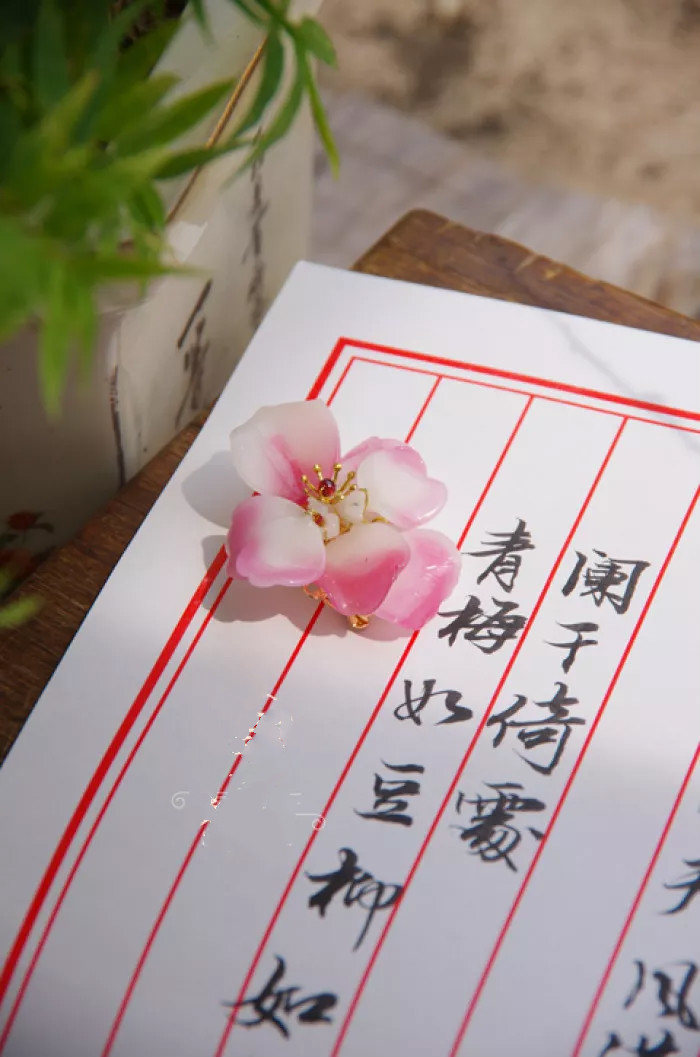 风
阑干倚處
青梅如豆柳如